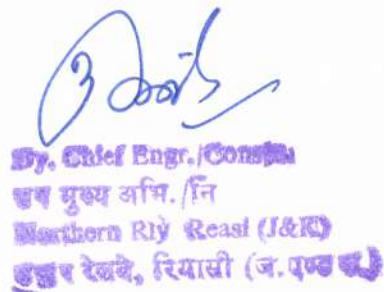 Dy. Chief Engr./Constn
उप मुख्य अभि./नि
Northern Rly Reasi (J&K)
उत्तर रेलवे, रियासी (ज.एण्ड क.)